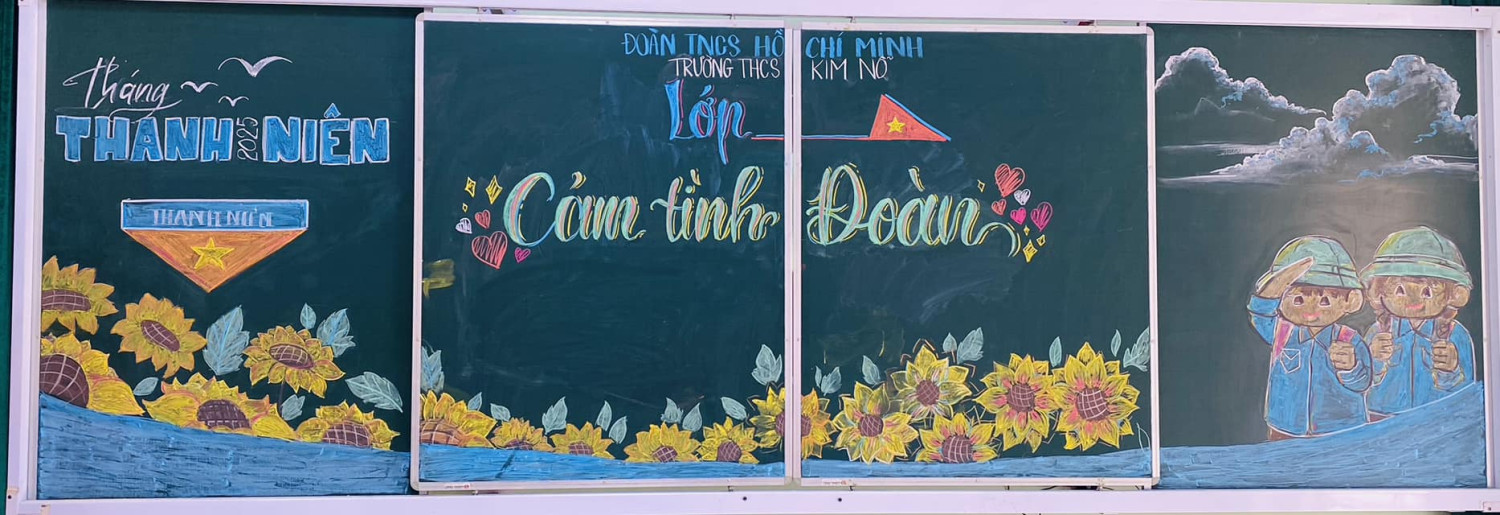 Tháng
THANH 2025 NIÊN
THANH NIÊN
ĐOÀN TNCS HỒ CHÍ MINH
TRƯỜNG THCS KIM NỖ
Lớp
Cảm tình Đoàn